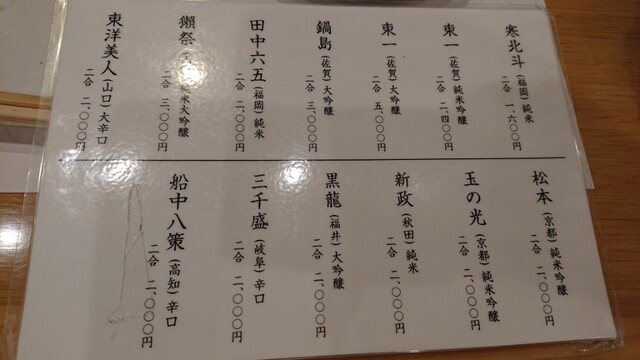 寒北斗(福岡)純米
二合 一、六〇〇円
東一(佐賀)純米吟醸
二合 二、四〇〇円
東一(佐賀)大吟醸
二合 五、〇〇〇円
鍋島(佐賀)大吟醸
二合 三、〇〇〇円
田中六五(福岡)純米
二合 二、〇〇〇円
獺祭 純米大吟醸
二合 三、〇〇〇円
東洋美人(山口)大辛口
二合 二、〇〇〇円
松本(京都)純米吟醸
二合 二、〇〇〇円
玉の光(京都)純米吟醸
二合 二、〇〇〇円
新政(秋田)純米
二合 二、〇〇〇円
黒龍(福井)大吟醸
二合 二、〇〇〇円
三千盛(岐阜)辛口
二合 二、〇〇〇円
船中八策(高知)辛口
二合 二、〇〇〇円